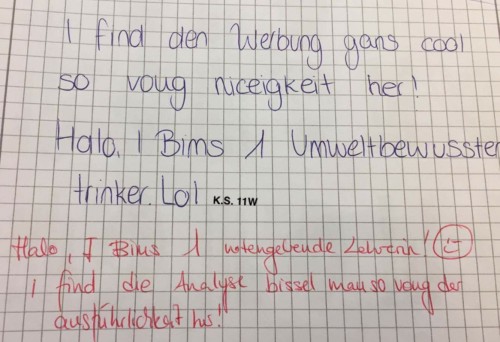 I find den Werbung gans cool
so voug niceigkeit her!
Halo, I Bims 1 Umweltbewusster
trinker. Lol K.S. 11W
Halo, I Bims 1 notengebende Lehrerin!
I find die Analyse bissel mau so voug der
ausführlichkeit hs!